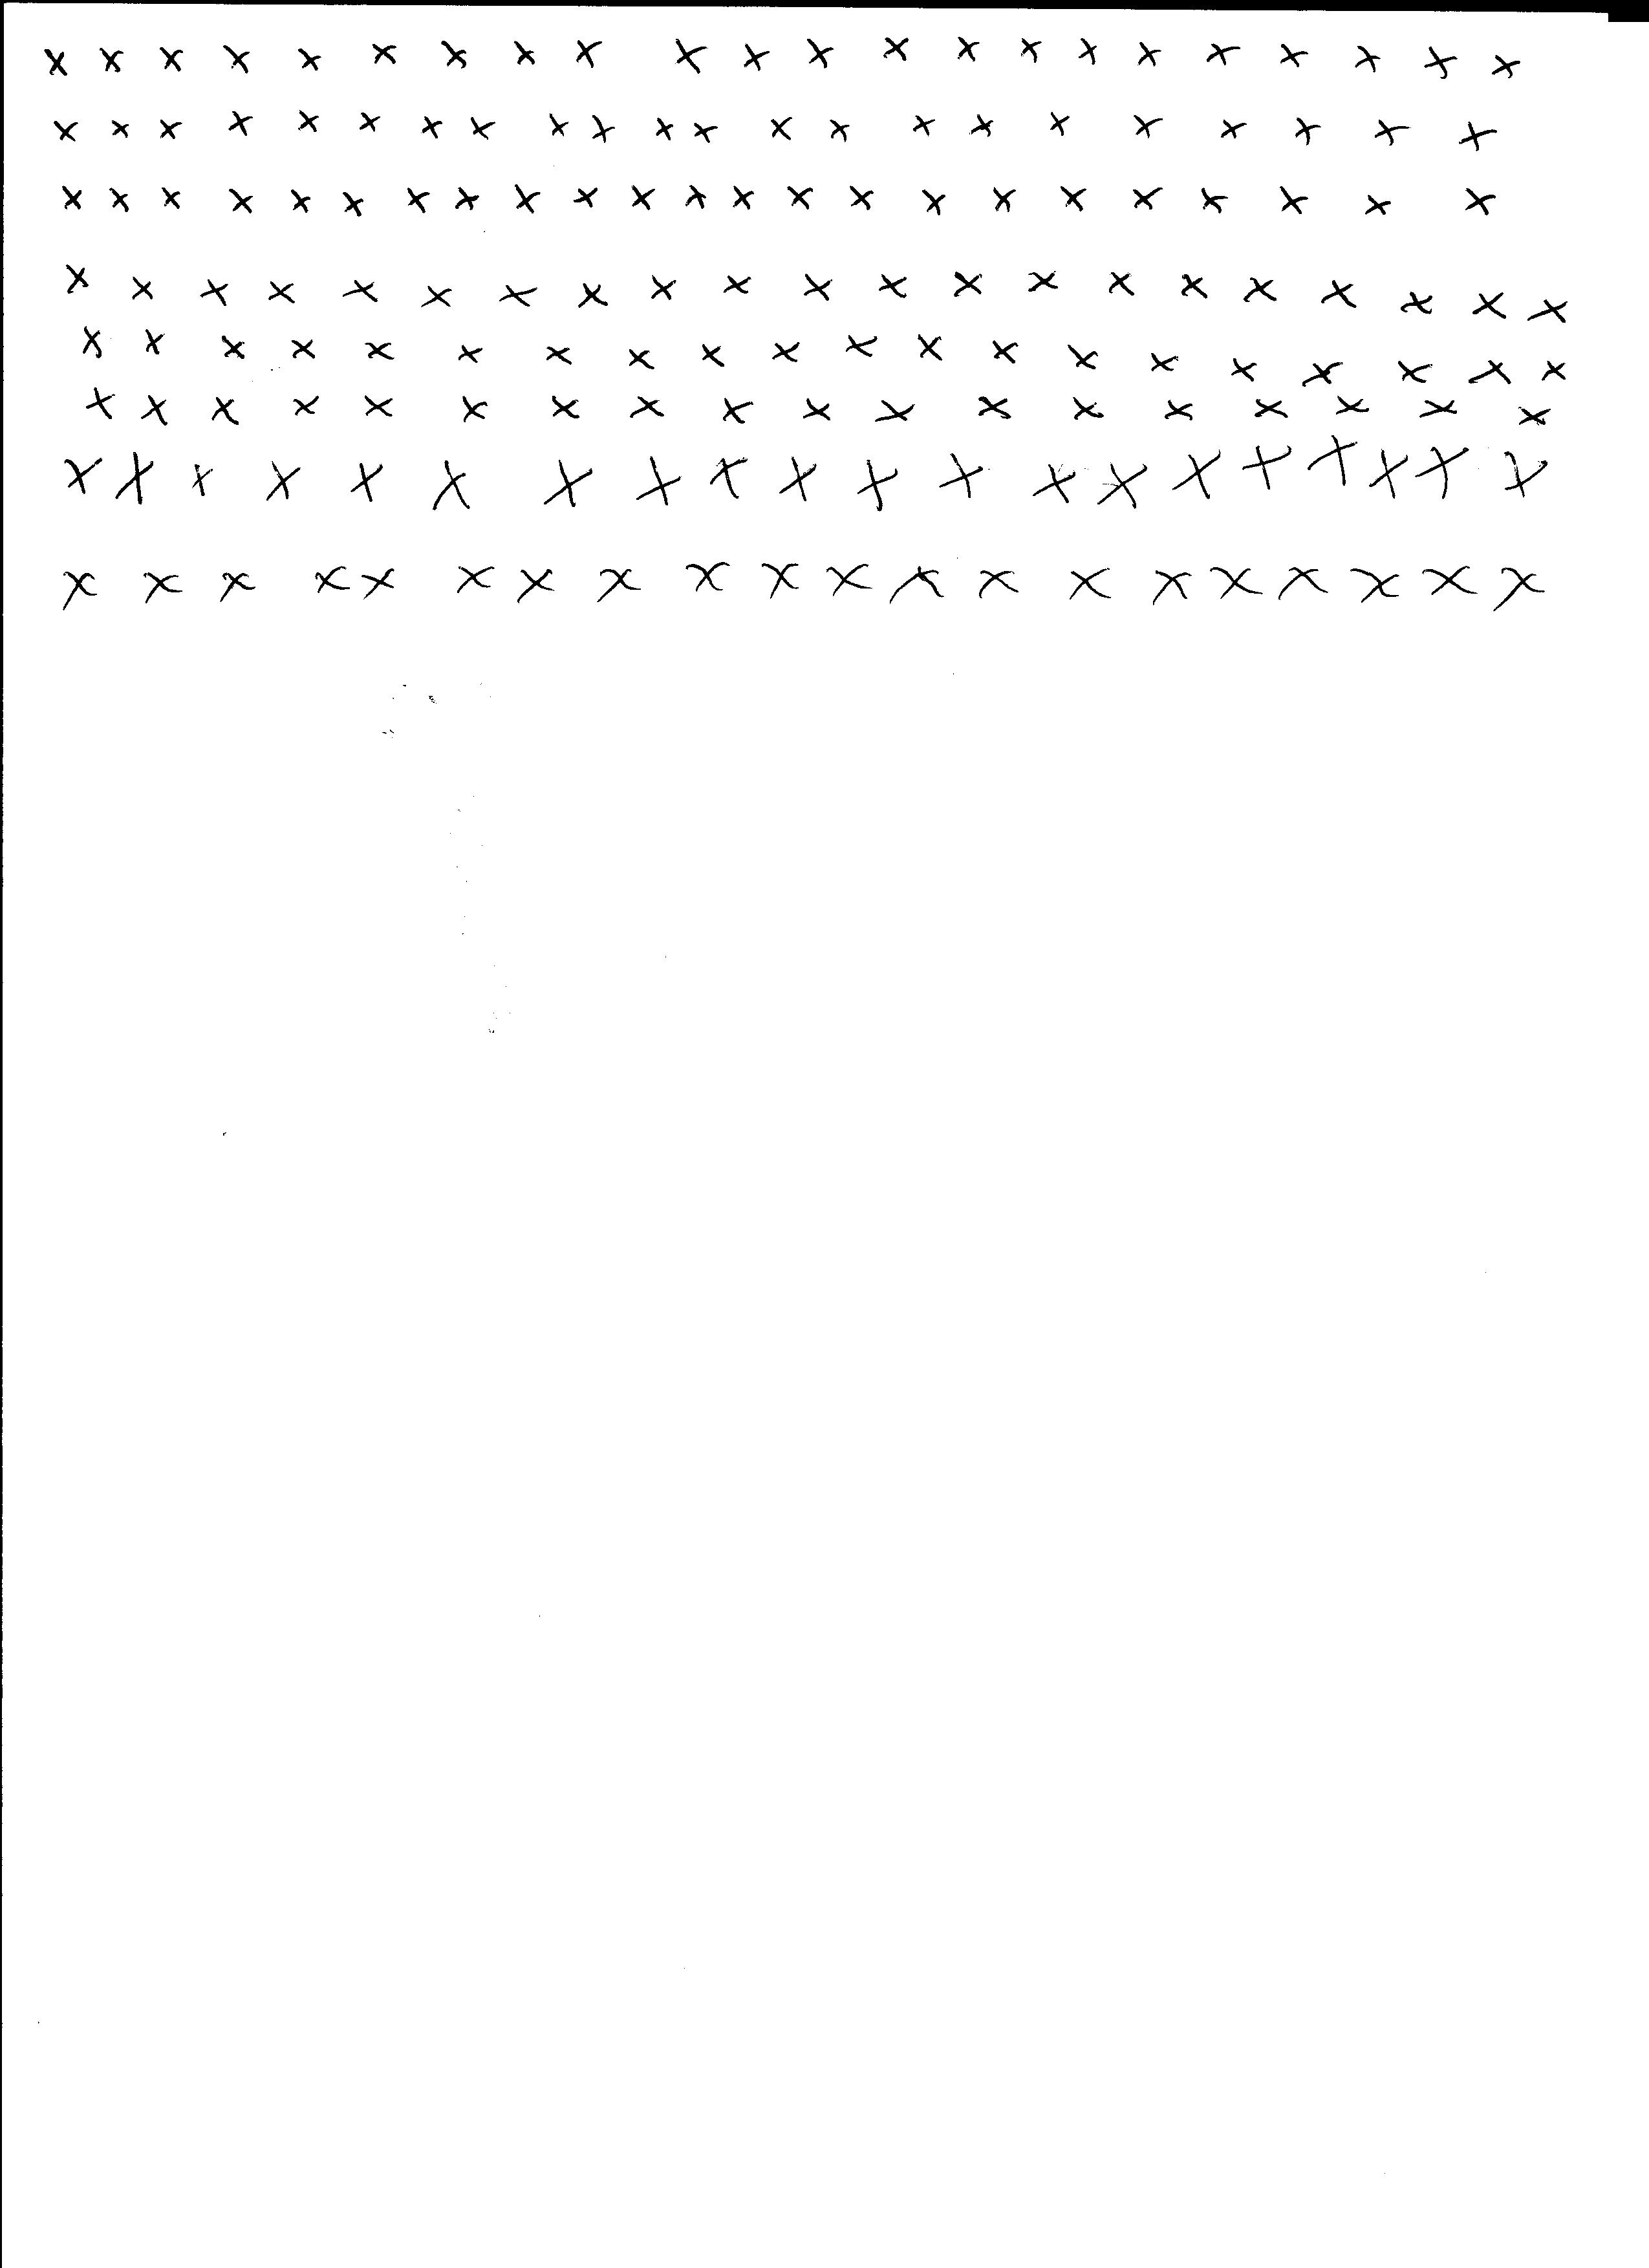 x x x x x x x x x x x x x x x x x x x x x x
x x x x x x x x x x x x x x x x x x x x x x
x x x x x x x x x x x x x x x x x x x x x x x
x x x x x x x x x x x x x x x x x x x x x
x x x x x x x x x x x x x x x x x x x x
x x x x x x x x x x x x x x x x x x
x x x x x x x x x x x x x x x x x x x x
x x x x x x x x x x x x x x x x x x x x